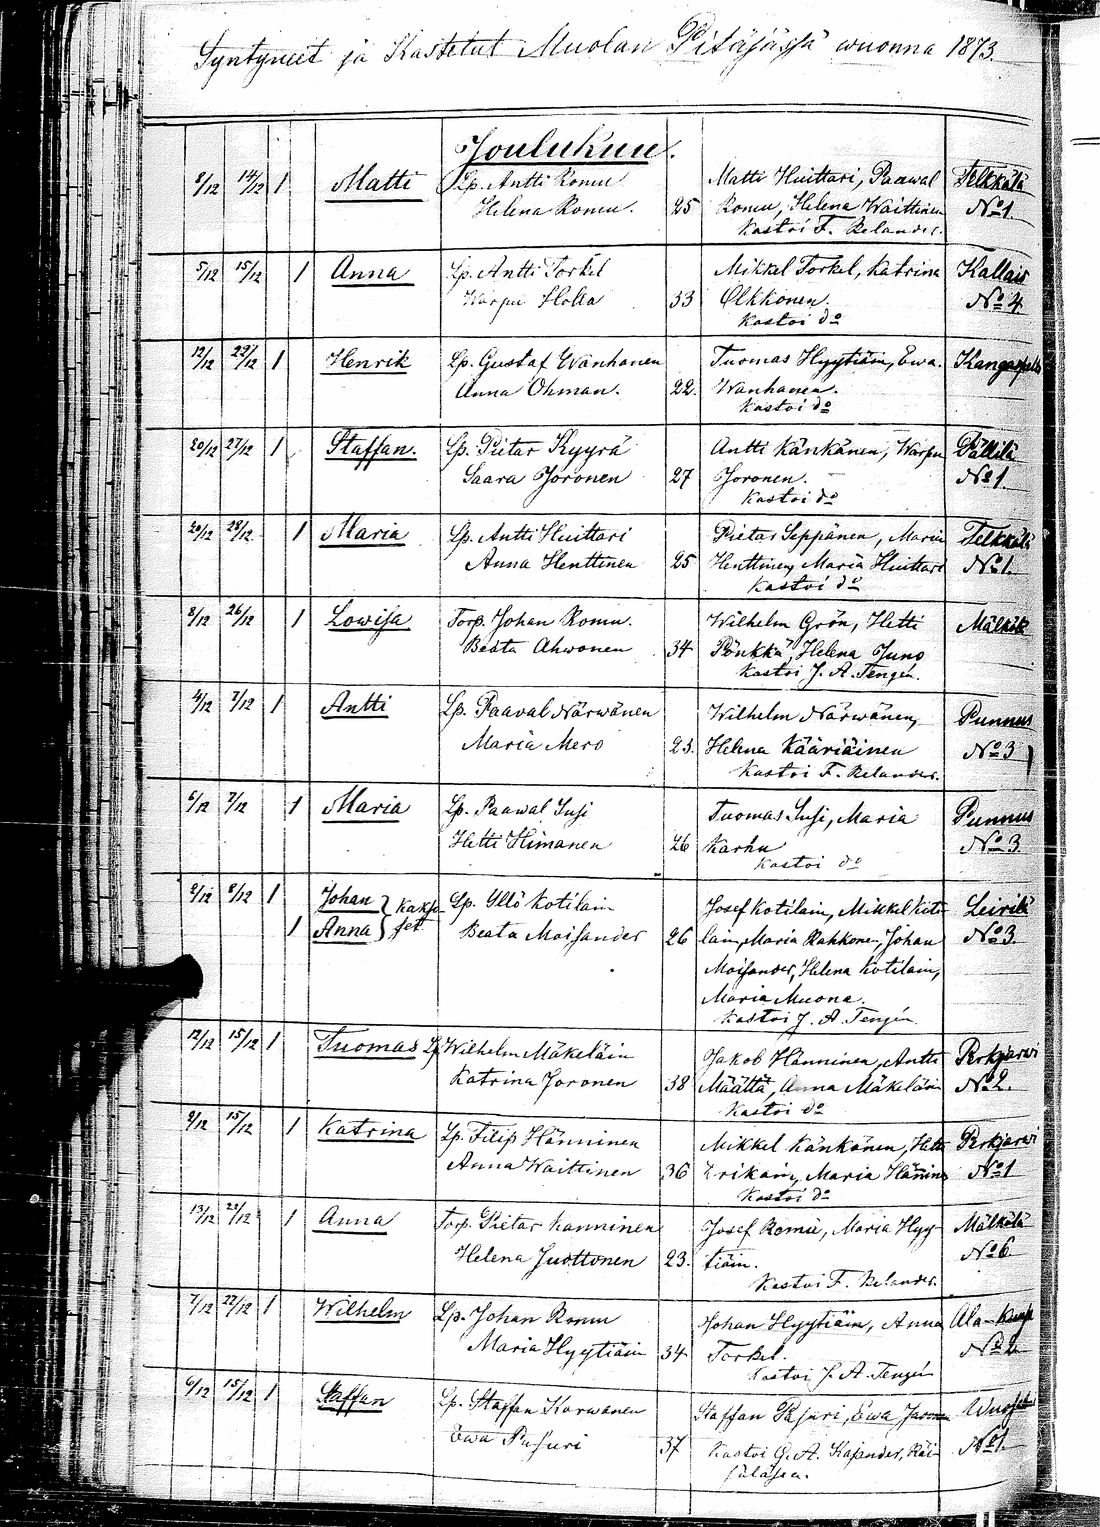 Syntyneet ja Kastetut Muolan Pitäjässä wuonna 1873.
Joulukuu.
8/12 14/12 1 Matti Lp. Antti Romu Matti Huittari, Paawal Telkkälä
Helena Romu. 25 Romu, Helena Waittinen No 1.
Kastoi F. Relander.
5/12 15/12 1 Anna Lp. Antti Torkel Mikkel Torkel, Katrina Kallais
Warpu Holla 33 Ölkkönen. No 4.
Kastoi do
12/12 22/12 1 Henrik Lp. Gustaf Wanhanen Tuomas Hyytiäin, Ewa.
Anna Öhman. 22. Wanhanen.
Kastoi do
20/12 27/12 1 Staffan. Lp. Pietar Kyyrä Antti Känkänen, Warpu Pällilä
Saara Joronen 27 Joronen. No 1.
Kastoi do
20/12 28/12 1 Maria Lp. Antti Huittari Pietar Seppänen, Maria Telkkälä
Anna Henttinen 25 Henttinen, Maria Huittari No 1.
Kastoi do
8/12 26/12 1 Lowisa Torp. Johan Romu. Wilhelm Grön, Hetti Mälkölä
Beata Ahwonen 34 Pönkkä, Helena Juno
Kastoi J. A. Tengén.
4/12 7/12 1 Antti Lp. Paaval Närwänen Wilhelm Närwänen, Punnus
Maria Mero 23. Helena Kääriäinen No 3
Kastoi F. Relander.
6/12 7/12 1 Maria Lp. Paawal Susi Tuomas Susi, Maria Punnus
Hetti Himanen 26 Karhu No 3.
Kastoi do
2/12 8/12 1 Johan } Kakso- Lp. Yllö Kotilain Josef Kotilain, Mikkel Koti- Leirilä
1 Anna } set. Beata Moisander 26 lain, Maria Rahkonen, Johan No 3.
Moisander, Helena Kotilain,
Maria Muona.
Kastoi J. A. Tengén
12/12 15/12 1 Tuomas Lp. Wilhelm Mäkeläin Jakob Hänninen, Antti Perkjärwi
Katrina Joronen 38 Määttä, Anna Mäkeläin No 2.
Kastoi do
9/12 15/12 1 Katrina Lp. Filip Hänninen Mikkel Känkänen, Hetti Perkjärwi
Anna Waittinen 36 Erikain, Maria Hännine No 1
Kastoi do
13/12 21/12 1 Anna Torp. Pietar Kanninen Josef Romu, Maria Hyy- Mälkölä
Helena Juottonen 23. tiäin. No 6
Kastoi F. Relander.
7/12 22/12 1 Wilhelm Lp. Johan Romu Johan Hyytiäin, Anna
Maria Hyytiäin 34 Torkel. No 2
Kastoi J. A. Tengén
6/12 15/12 1 Staffan Lp. Staffan Korwanen Staffan Pusuri, Ewa
Ewa Pusuri 37 Kastoi G. A. Kajander, Räi- No 1.
säläjsä.